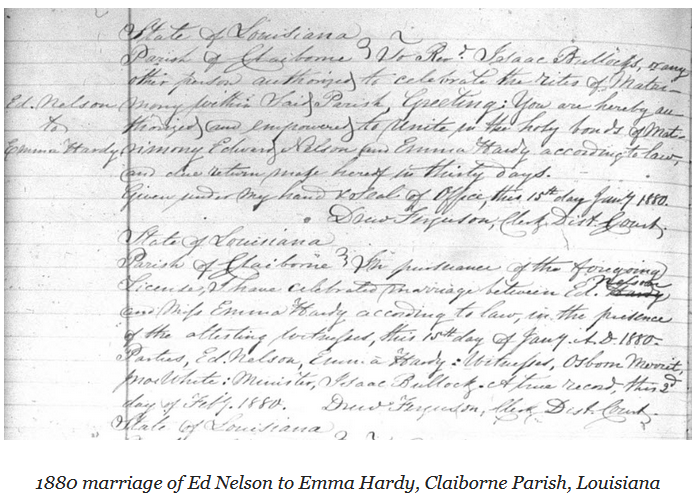 State of Louisiana
Parish of Claiborne } To Rev.d Isaac Bullock, or any
other person authorized to celebrate the rites of Matri-
Ed. Nelson mony within Said Parish, Greeting: You are hereby au-
to thorized and empowered to Unite in the holy bonds of Mat-
Emma Hardy rimony Edward Nelson and Emma Hardy according to law,
and due return make hereof in thirty days.
Given under my hand & Seal of Office, this 15th day Jany 1880.
Drew Ferguson, Clerk Dist. Court.
State of Louisiana
Parish of Claiborne } In pursuance of the foregoing
License, I have celebrated marriage between Ed. Nelson
and Miss Emma Hardy according to law, in the presence
of the attesting witnesses, this 15th day of Jany. A.D. 1880-
Parties, Ed. Nelson, Emma Hardy: Witnesses, Osborn Merrit,
White: Minister, Isaac Bullock. A true record, this 2d
day of Feby. 1880. Drew Ferguson, Clerk Dist. Court.
State of Louisiana
1880 marriage of Ed Nelson to Emma Hardy, Claiborne Parish, Louisiana